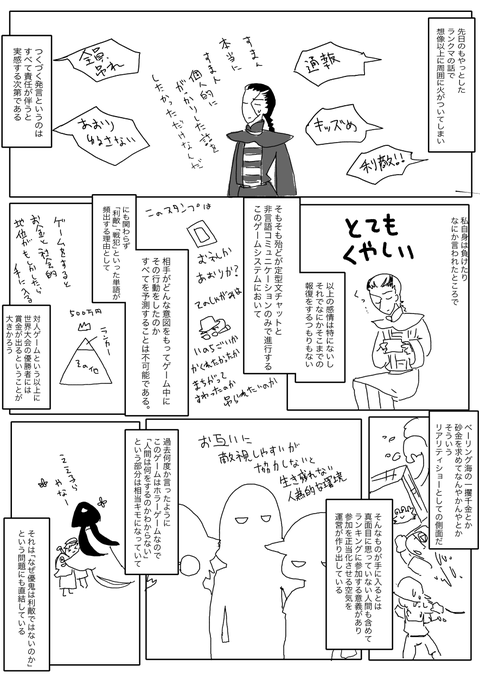 先日のもやっとした
ランクマの話で
想像以上に周囲に火がついてしまい
通報
キッズめ
利敵!!
すまん
本当に
すまん
個人的に
がっかりした話を
したかっただけなんだ
全員
吊れ
あおり
ゆるさない
つくづく発言というのは
すべて責任が伴うと
実感する次第である
私自身は負けたり
なにか言われたところで
とても
くやしい
以上の感情は特にないし
それでなにかそこまでの
報復をするつもりもない
そもそも殆どが定型文チャットと
非言語コミュニケーションのみで進行する
このゲームシステムにおいて
このスタンプは
おうえんか
あおりか?
相手がどんな意図をもってゲーム中に
その行動をしたのか
すべてを予測することは不可能である。
にも関わらず
「利敵」「戦犯」といった単語が
頻出する理由として
ゲームをすると
お金と社会的
地位がもらえた。
手に入る
500万円
ランカー
その他
対人ゲームという以上に
世界大会の優勝者には
賞金が出るということが
大きかろう
ベーリング海の一攫千金とか
砂金を求めてなんやかんやとか
そういう
リアリティショーとしての側面だ
そんなものが手に入るとは
真面目に思っていない人間も含めて
ランキングに参加する意義があり
参加を正当化させる空気を
運営が作り出している
お互いに
敵視しやすいが
協力しないと
生き残れない
人為的な環境
過去何度か言ったように
このゲームはホラーゲームなので
「人間は何をするのかわからない」
という部分は相当キモになっていて
それは「なぜ優鬼は利敵ではないのか」
という問題にも直結している